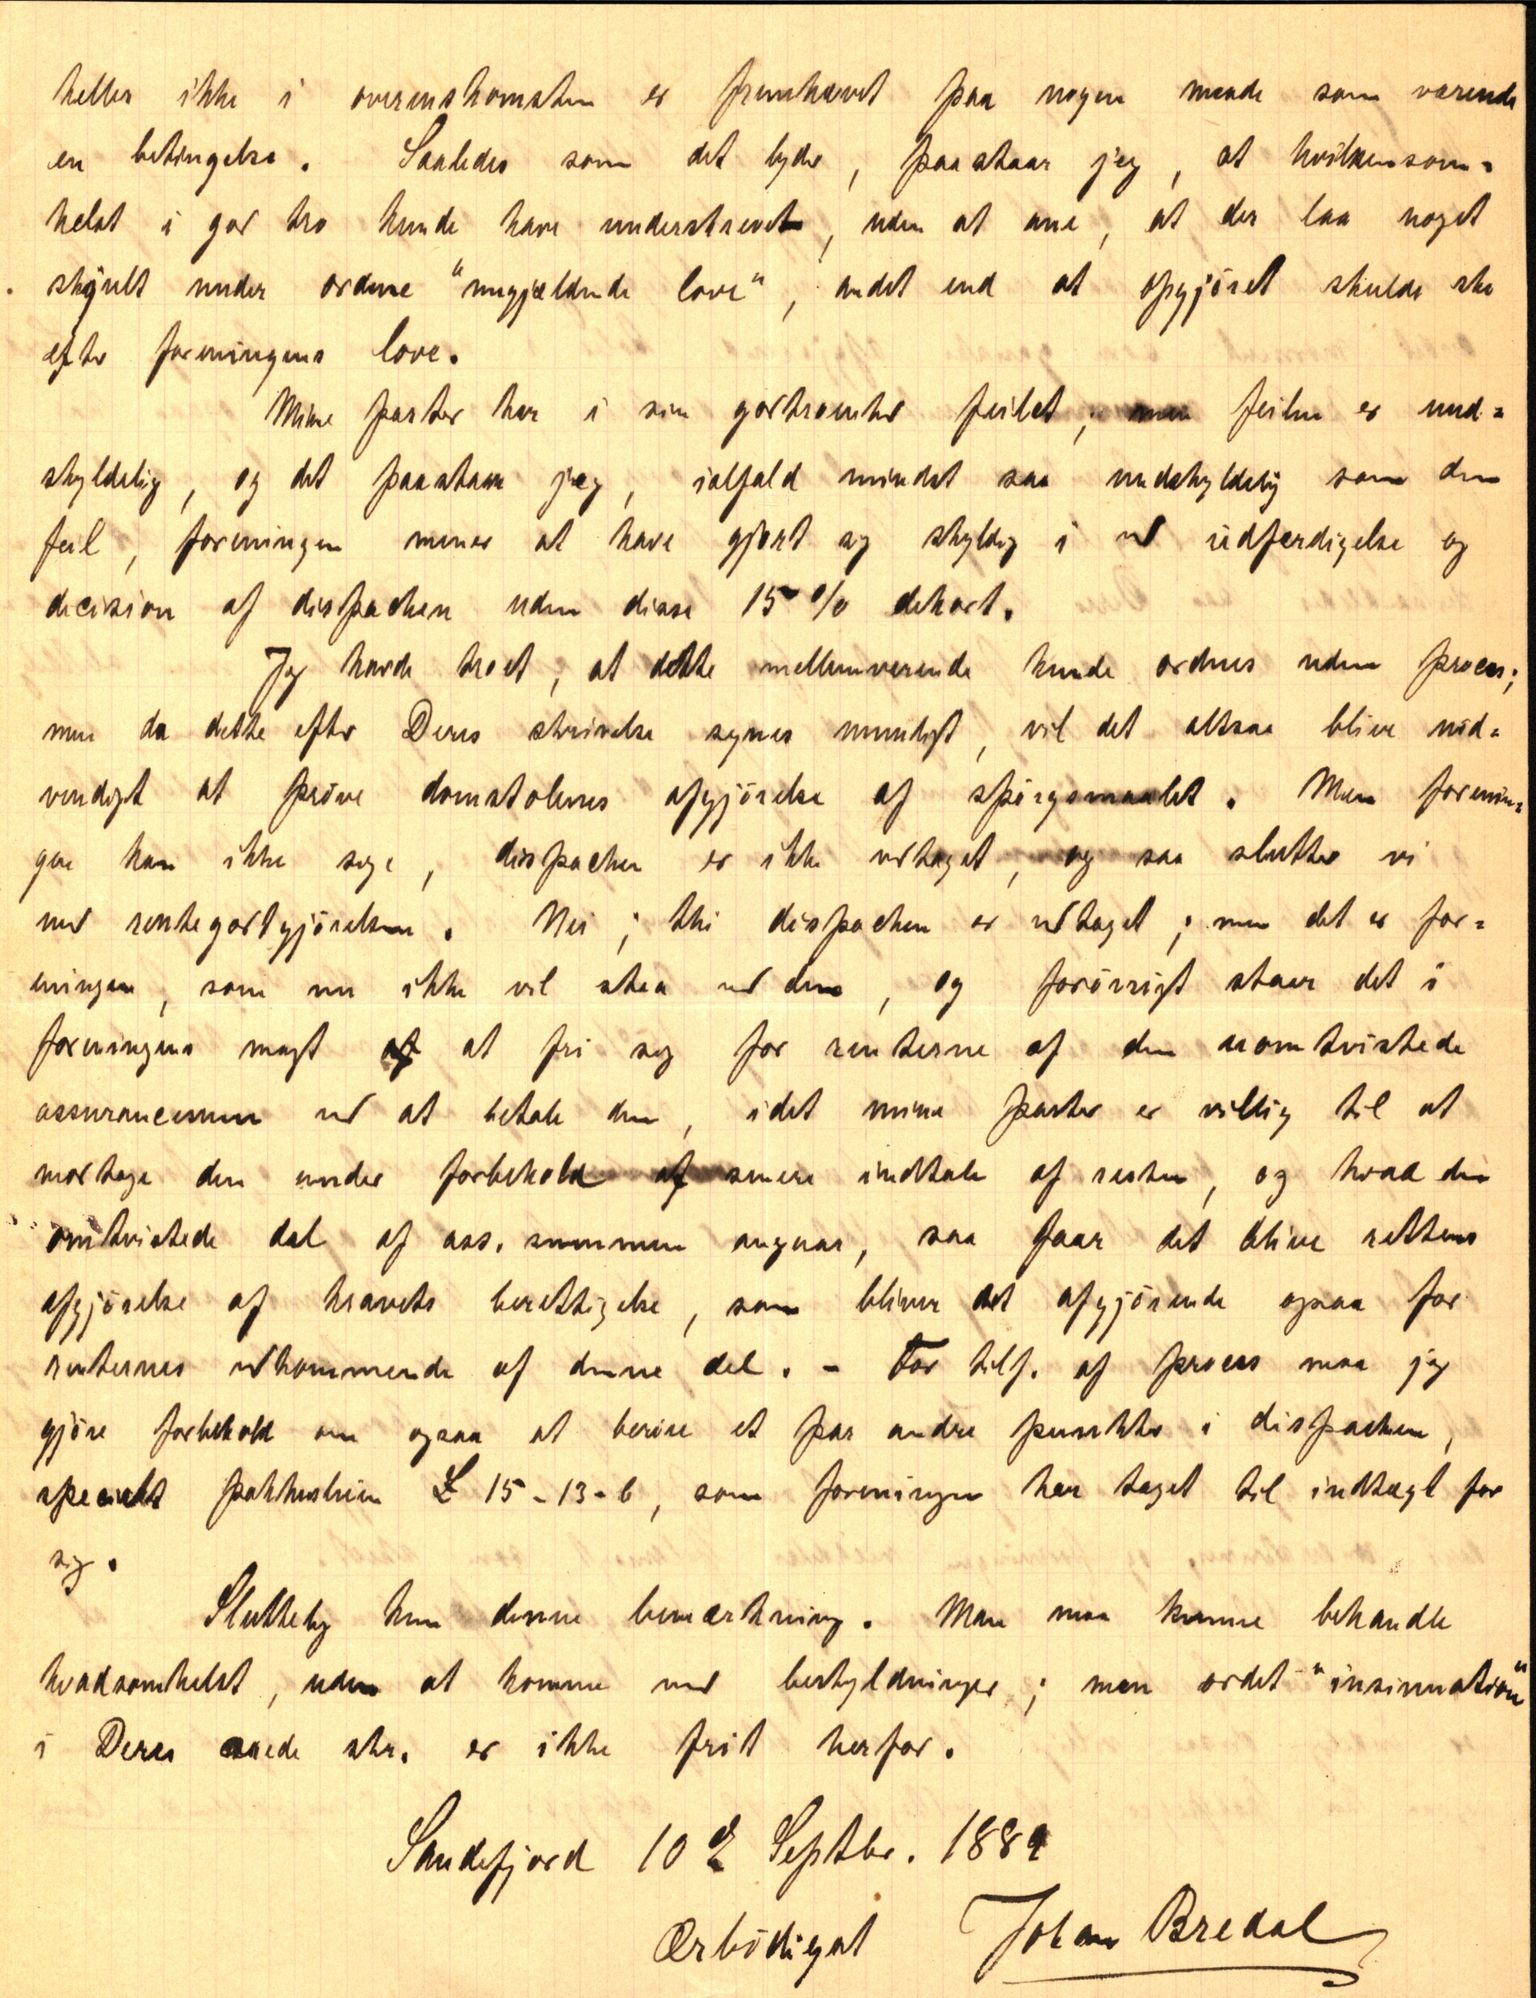 heller ikke i overenskomsten er fremhævet paa nogen maade som værende
en betingelse. Saaledes som det lyder, paastaar jeg, at hvilkensom-
helst i god tro kunde have underskrevet, uden at ane, at der laa noget
skjult under ordene "nugjældende love", andet end at opgjöret skulde ske
efter foreningens love.
Mine parter har i sin godtroenhed feilet; men feilen er und-
skyldelig, og det paastaar jeg, ialfald mindst saa undskyldelig som den
feil, foreningen mener at have gjort sig skyldig i ved udfærdigelse og
decision af dispachen uden disse 15 % dekort.
Jeg havde troet, at dette mellemværende kunde ordnes uden proces;
men da dette efter Deres skrivelse synes umuligt, vil det altsaa blive nöd-
vendigt at pröve domstolenes afgjörelse af spörgsmaalet. Men forenin-
gen kan ikke sige, dispachen er ikke vedtaget, og saa slutter vi
med rentegodtgjörelsen. Nei; thi dispachen er vedtaget; men det er for-
eningen, som nu ikke vil staa ved den, og forövrigt staar det i
foreningens magt af at fri sig for renterne af den uomtvistede
assurancesum ved at betale den, idet mine parter er villig til at
modtage den under forbehold af senere indtale af resten, og hvad den
omtvistede del af ass. summen angaar, saa faar det blive rettens
afgjörelse af kravets berettigelse, som bliver det afgjörende ogsaa for
renternes vedkommende af denne del. - For tilf. af proces maa jeg
gjöre forbehold om ogsaa at beröre et par andre punkter i dispachen,
specielt pakhusleien £ 15-13-6, som foreningen har taget til indtægt for
sig.
Slutteligt kun denne bemærkning. Man maa kunne behandle
hvadsomhelst, uden at komme med beskyldninger; men ordet "insinuation"
i Deres ærede skr. er ikke frit herfor.
Sandefjord 10 Septbr. 1889
Ærbödigst Johan Bredal